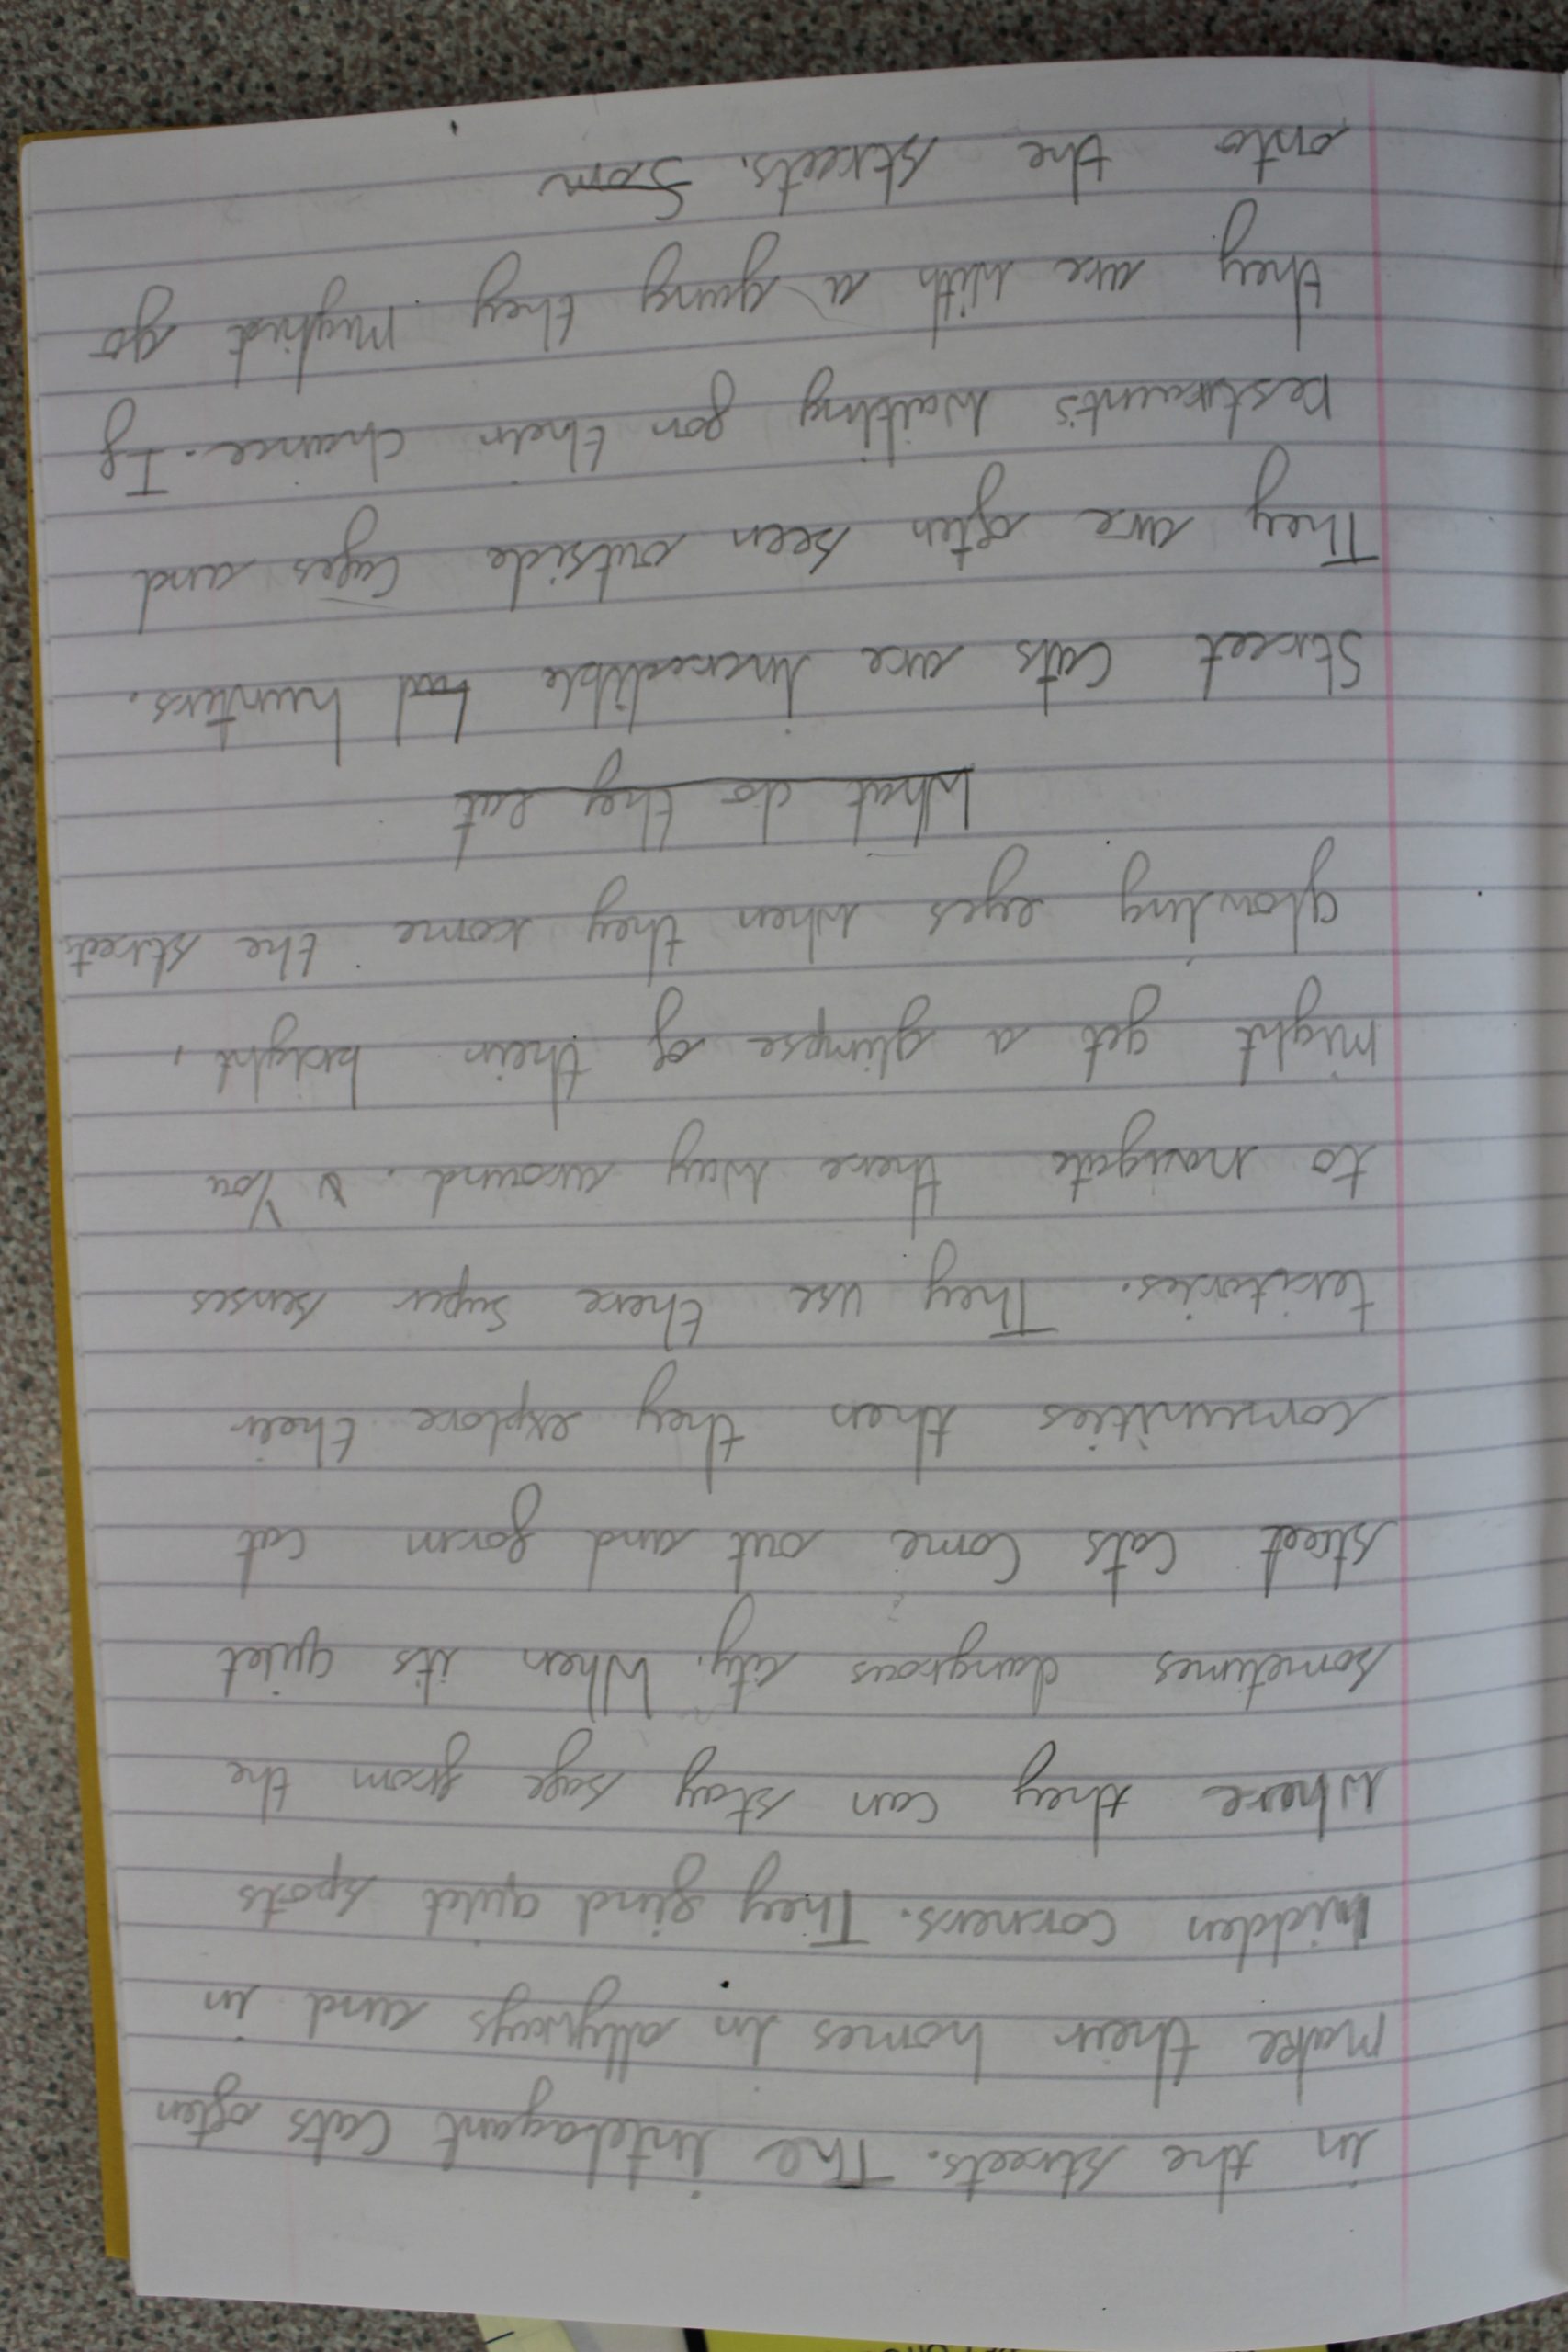 in the streets. The intelagant cats often
make their homes in allyways and in
hidden corners. They find quiet spots
where they can stay safe from the
sometimes dangrous city. When it's quiet
street cats come out and form cat
comunities then they explore their
teritories. They use there super senses
to navigate there way around. You
might get a glimpse of their bright,
glowing eyes when they rome the street
What do they eat
Street cats are incredible hunters.
They are often seen outside cafes and
restraunts waiting for their chance. If
they are with a gang they might go
onto the streets. Som